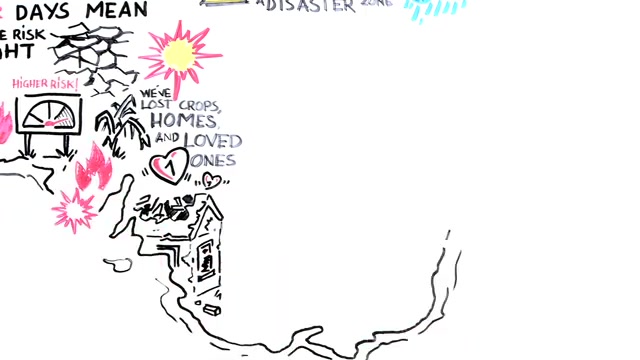 DAYS MEAN
RISK
A DISASTER ZONE
HIGHER RISK!
WE'VE
LOST CROPS,
HOMES,
AND LOVED
ONES